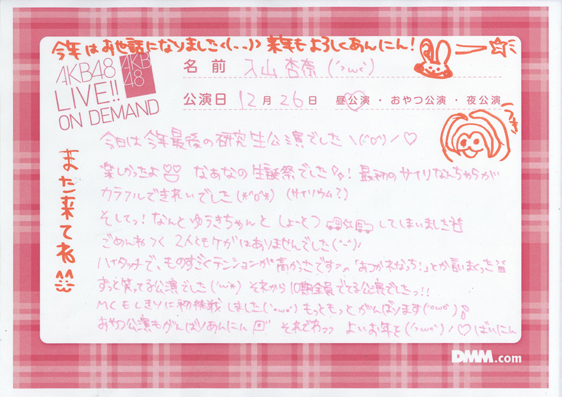 今年はお世話になりました<(_ _)> 来年もよろしくあんにん！
AKB48
LIVE!!
ON DEMAND
AKB
48
名前 入山杏奈 ('>ω<')
公演日 12月26日 昼公演・おやつ公演・夜公演
また来てね
今日は今年最後の研究生公演でした＼(^o^)／♡
楽しかったよ なぁなの生誕祭でした！最初のサイリウムちゃちが
カラフルできれいでした (サイリウム？)
そしてっ！なんとゆうきちゃんと しょーとつ してしまいました
ごめんねっ 2人ともケガはありませんでした
ハイタッチで、ものすごくテンションが高かったですっ。「おつかれなっち！」とか言いまくった
ずっと笑ってる公演でした それから10期全員ででる公演でしたっ！！
MCもしきりに初挑戦しました もっともっとがんばります
おやつ公演もがんばりあんにん それではっっ よいお年を ♡ ばいにん
DMM.com